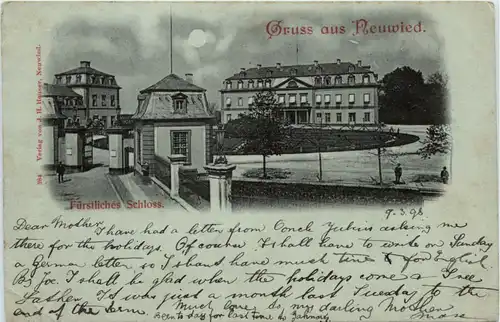 Gruss aus Neuwied.
384 Verlag von J. H. Heuser, Neuwied.
Fürstliches Schloss.
9.3.98
Dear Mother, I have had a letter from Oncl Julius asking me
there for the holidays. Of course I shall have to write on Sunday
a German letter so I shant have much time for English
By Joe I shall be glad when the holidays come & I see
Father. It was just a month last Tuesday to the
end of the term. Much love to my darling Mother
from